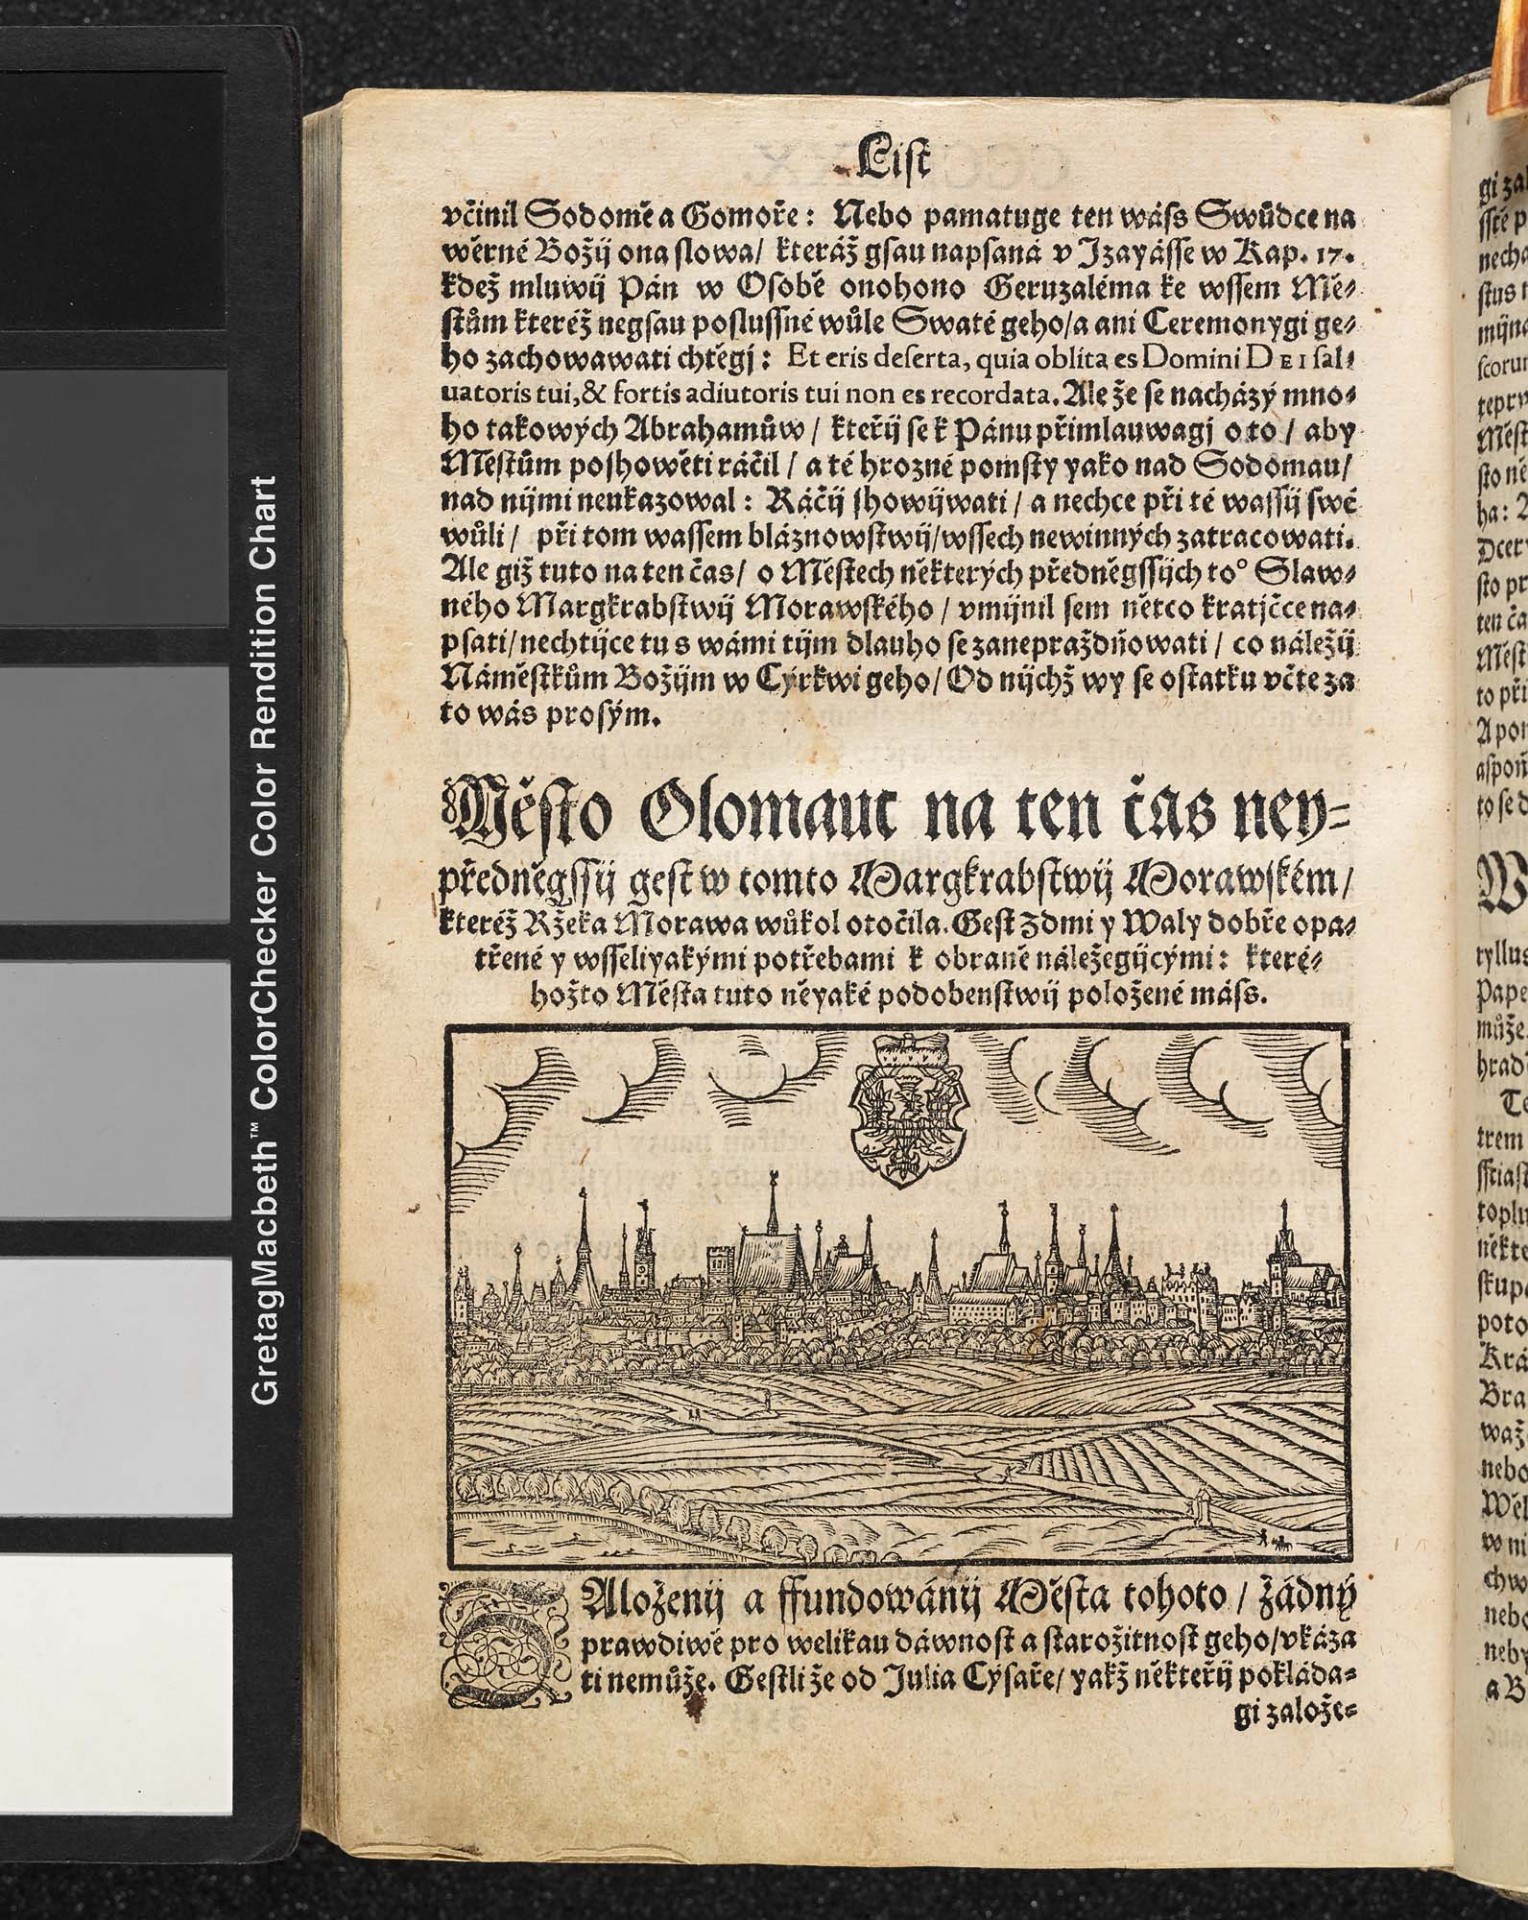 GretagMacbeth™ ColorChecker Color Rendition Chart
List
včinil Sodomě a Gomoře: Nebo pamatuge ten wáſs Swůdce na
wěrné Božij ona ſlowa/ kteráž gſau napſaná v Izayáſſe w Kap. 17.
kdež mluwij Pán w Oſobě onohono Geruzaléma ke wſſem Mě⸗
ſtům kteréž negſau poſluſſné wůle Swaté geho/ a ani Ceremonygi ge⸗
ho zachowawati chtěgj: Et eris deſerta, quia oblita es Domini DEI ſal⸗
uatoris tui, & fortis adiutoris tui non es recordata. Ale že ſe nacházý mno⸗
ho takowých Abrahamůw/ kteřij ſe k Pánu přimlauwagj o to/ aby
Měſtům poſhowěti ráčil/ a té hrozné pomſty yako nad Sodomau/
nad nijmi neukazowal: Ráčij ſhowijwati/ a nechce při té waſſij ſwé
wůli/ při tom waſſem bláznowſtwij/ wſſech newinných zatracowati.
Ale giž tuto na ten čas/ o Měſtech některých předněgſſijch to° Slaw⸗
ného Margkrabſtwij Morawſkého/ vmijnil ſem něrco kratjčce na⸗
pſati/ nechtijce tu s wámi tijm dlauho ſe zanepraždňowati/ co náležij
Náměſtkům Božijm w Cýrkwi geho/ Od nijchž wy ſe oſtatku včte za
to wás proſým.
Měſto Olomauc na ten čas ney⸗
předněgſſij geſt w tomto Margkrabſtwij Morawſkém/
kteréž Ržeka Morawa wůkol otočila. Geſt Zdmi y Waly dobře opa⸗
třené y wſſeliyakými potřebami k obraně náležegijcými: které⸗
hožto Měſta tuto něyaké podobenſtwij položené máſs.
ZAloženij a ffundowánij Měſta tohoto/ žádný
prawdiwě pro welikau dáwnoſt a ſtarožitnoſt geho/ vkáza
ti nemůže. Geſtliže od Julia Cýſaře/ yakž někteřij pokláda⸗
gi založe⸗